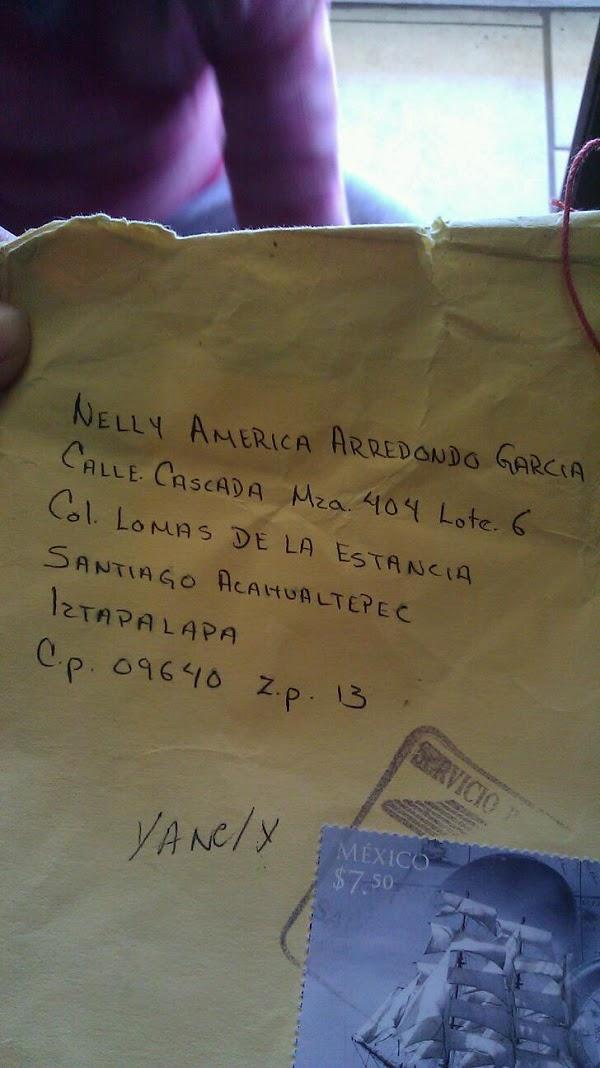 NELLY AMERICA ARREDONDO GARCIA
CALLE. CASCADA Mza. 404 Lote. 6
Col. LOMAS DE LA ESTANCIA
SANTIAGO ACAHUALTEPEC
IZTAPALAPA
C.p. 09640 Z.p. 13
SERVICIO
MÉXICO
$7.50